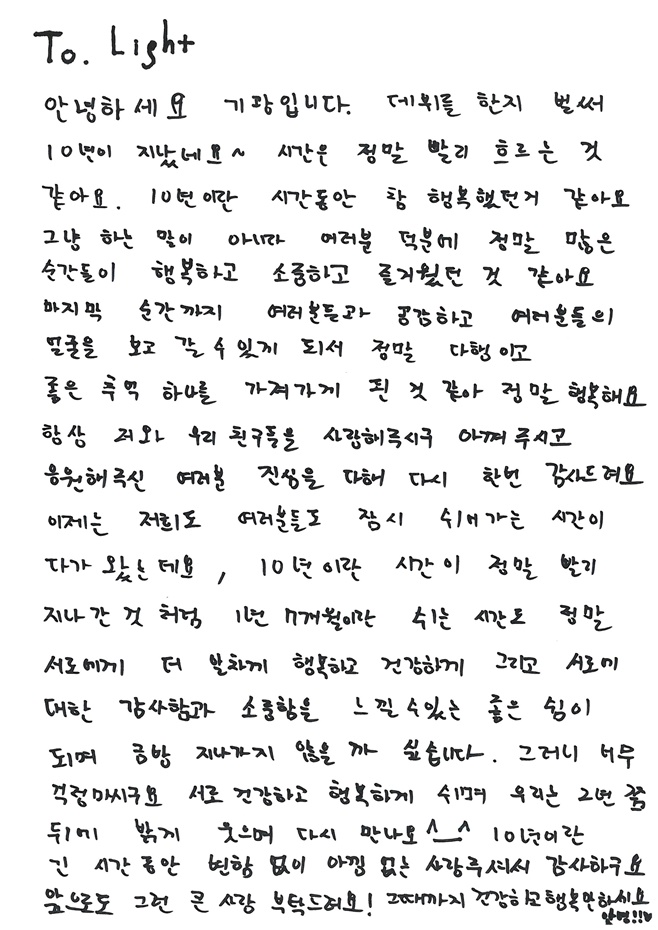 To. Light
안녕하세요 기광입니다. 데뷔를 한지 벌써
10년이 지났네요~ 시간은 정말 빨리 흐르는 것
같아요. 10년이란 시간동안 참 행복했던거 같아요
그냥 하는 말이 아니라 여러분 덕분에 정말 많은
순간들이 행복하고 소중하고 즐거웠던 것 같아요
마지막 순간까지 여러분들과 공감하고 여러분들의
얼굴을 보고 갈 수 있게 되서 정말 다행이고
좋은 추억 하나를 가져가게 된 것 같아 정말 행복해요
항상 저와 우리 친구들을 사랑해주시구 아껴주시고
응원해주신 여러분 진심을 다해 다시 한번 감사드려요
이제는 저희도 여러분들도 잠시 쉬어가는 시간이
다가 왔는데요, 10년이란 시간이 정말 빨리
지나간 것 처럼 1년 7개월이란 쉬는 시간도 정말
서로에게 더 알차게 행복하고 건강하게 그리고 서로에
대한 감사함과 소중함을 느낄 수 있는 좋은 쉼이
되며 금방 지나가지 않을 까 싶습니다. 그러니 너무
걱정마시구요 서로 건강하고 행복하게 쉬며 우리는 2년 쯤
뒤에 밝게 웃으며 다시 만나요^_^ 10년이란
긴 시간 동안 변함 없이 아낌 없는 사랑주셔서 감사하구요
앞으로도 그런 큰 사랑 부탁드려요! 그때까지 건강하고 행복만하세요
안녕!!♡